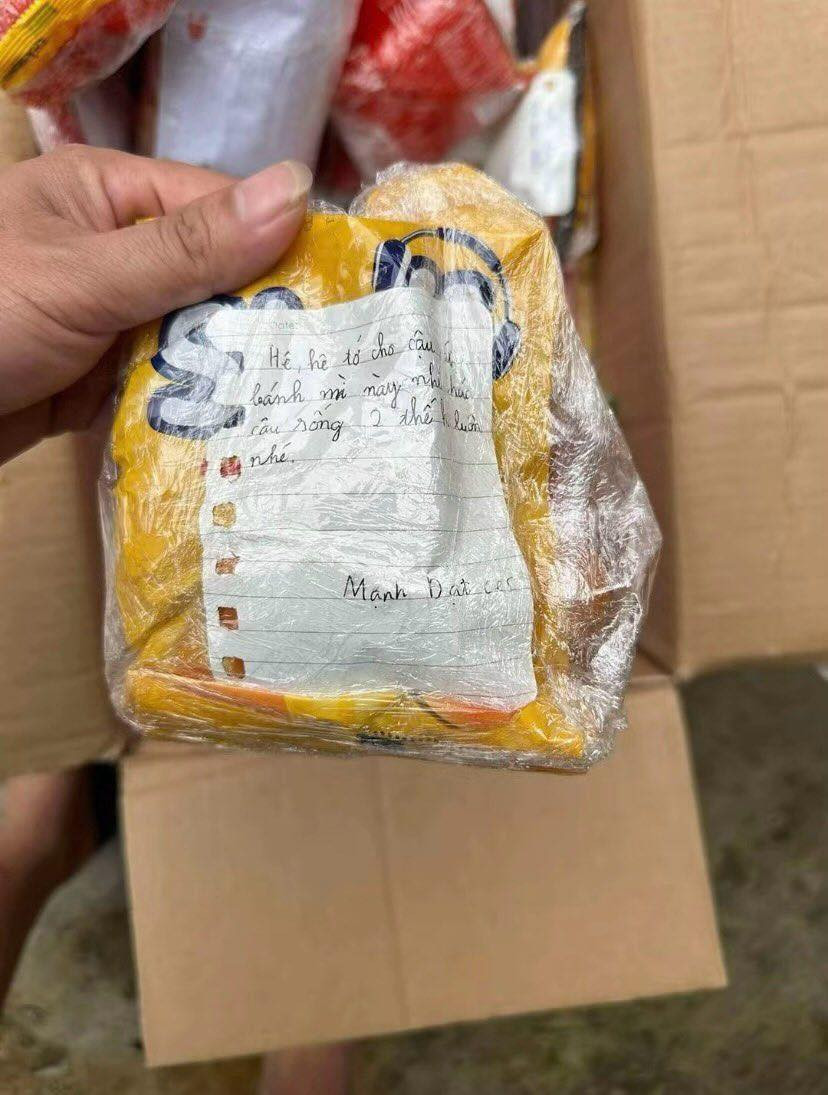 Date:
Hê, hê tớ cho cậu
bánh mì này nhé chúc
cậu sống 2 thế kỉ luôn
nhé.
Mạnh Đạt